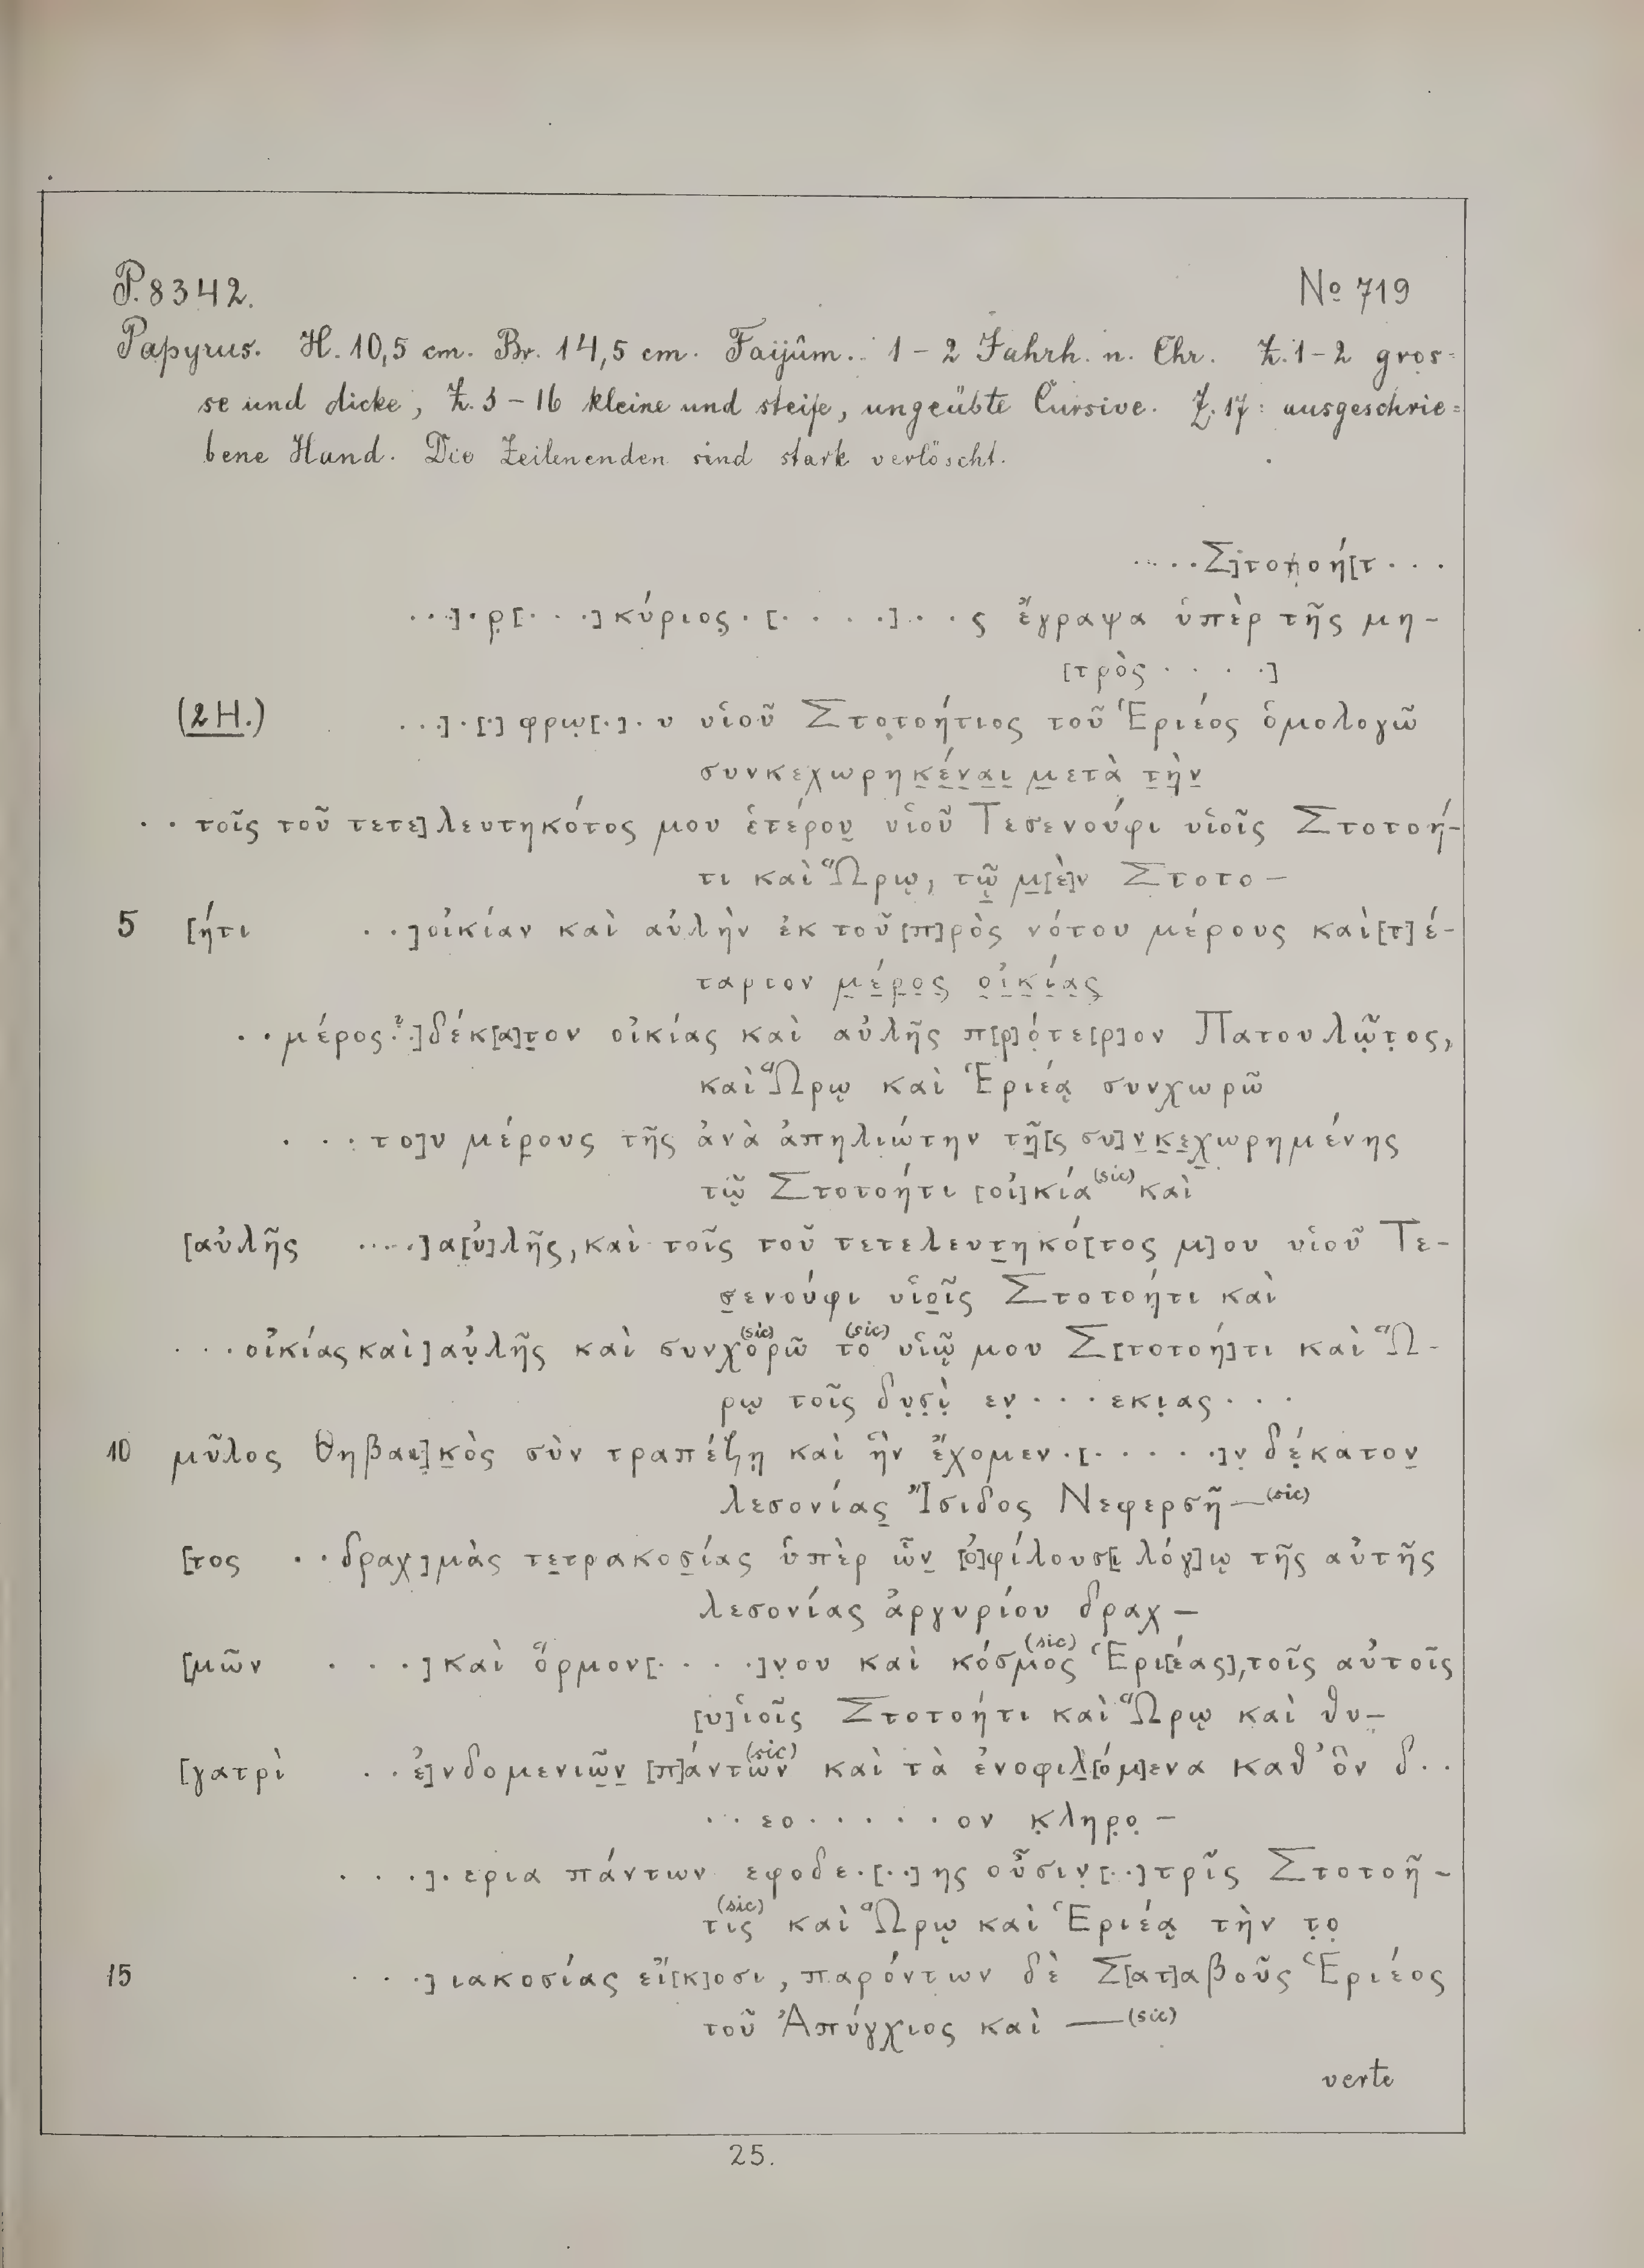 P. 8342. No 719
Papyrus. H. 10,5 cm. Br. 14,5 cm. Faijûm. 1 – 2 Jahrh. n. Chr. Z. 1 – 2 gros=
se und dicke, Z. 3 – 16 kleine und steife, ungeübte Cursive. Z. 17: ausgeschrie=
bene Hand. Die Zeilenenden sind stark verlöscht.
. . . . . Σ]τοτοή[τ . . .
. . .] . ρ̣[. . .] κύριος̣ . [. . . . .] . . ς ἔγραψα ὑπὲρ τῆς μη-
[τρὸς . . . .]
(2 H.) . . .] . [.] φρω̣[. .] . υ υἱοῦ Στοτοήτιος τοῦ Ἑριέος ὁμολογῶ
συνκεχωρηκ̣έ̣ν̣α̣ι̣ μ̣ετὰ τ̣ὴ̣ν̣
. . τοῖς τοῦ τετε]λευτηκότος μου ἑτέρου̣ υἱοῦ Τεσενούφι υἱοῖς Στοτοή-
τι καὶ Ὥρῳ, τῷ̣ μ̣[ὲ]ν Στοτο-
5 [ήτι . .] οἰκίαν καὶ αὐλὴν ἐκ τοῦ [π]ρὸς νότου μέρους καὶ [τ]έ-
ταρτον μ̣έ̣ρ̣ο̣ς̣ ο̣ἰ̣κ̣ί̣α̣ς̣
. . μέρος ? .] δέκ[α]τ̣ον οἰκίας καὶ αὐλῆς π[ρ]ό̣τε[ρ]ον Πατουλῶ̣τ̣ος,
καὶ Ὥρῳ καὶ Ἑριέᾳ συνχωρῶ
. . . το]υ μέρ̣ους τῆς ἀνὰ ἀπηλιώτην τῆ̣[ς συ]ν̣κ̣ε̣χ̣ωρημένης
τῷ Στοτοήτι [οἰ]κία (sic) καὶ
[αὐλῆς . . . . .] α[ὐ]λῆς, καὶ τοῖς τοῦ τετελευτ̣ηκό[τος μ]ου υἱοῦ Τε-
σ̣ενούφι υἱο̣ῖς Στοτοήτι καὶ
. . . οἰκίας καὶ] αὐ̣λῆς καὶ συνχορῶ (sic) το (sic) υἱῷ μου Σ[τοτοή]τι καὶ Ὥ-
ρῳ τοῖς δυ̣σ̣ὶ̣ εν̣ . . . εκι̣ας . . .
10 μῦλος θηβαϊ]κ̣ὸς σὺν τραπέζῃ καὶ ἣν ἔχομεν . [. . . . . .]ν̣ δέ̣κατον̣
λεσονίας̣ Ἴσιδος Νεφερσῆ— (sic)
[τος . . δραχ]μὰς τε̣τρακοσ̣ίας ὑπὲρ ὧν̣ [ὀ]φίλουσ[ι λόγ]ῳ τῆς αὐτῆς
λεσονίας ἀργυρίου δραχ-
[μῶν . . . .] καὶ ὅρμον [. . . . .]ν̣ου καὶ κόσμος (sic) Ἑρι[έας], τοῖς αὐτοῖς
[υ]ἱοῖς Στοτοήτι καὶ Ὥρῳ καὶ θυ-
[γατρὶ . . ἐ]νδομενιῶ̣ν̣ [π]άντων (sic) καὶ τὰ ἐνοφιλ̣[όμ]ενα καθ' ὃν δ . .
. . . εο . . . . . . ον κ̣ληρ̣ο̣-
. . . .] . ερια πάντων εφοδε . [. .] ης οὖσιν̣ [. .] τρῖς Στοτοῆ-
τις (sic) καὶ Ὥρῳ καὶ Ἑριέᾳ τὴν τ̣ο̣
15 . . . .] ιακοσίας εἴ[κ]οσι, παρόντων δὲ Σ[ατ]αβοῦς Ἑριέος
τοῦ Ἀπύγχιος καὶ — (sic)
verte
25.